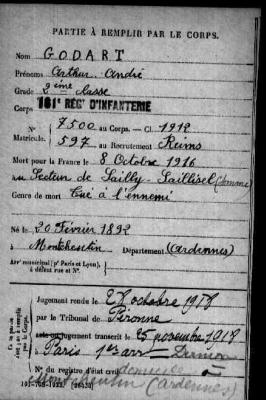 PARTIE À REMPLIR PAR LE CORPS.
Nom GODART
Prénoms Arthur André
Grade 2ème classe
Corps 161e RÉGt D'INFANTERIE
N° 7500 au Corps. — Cl. 1912
Matricule. 597 au Recrutement Reims
Mort pour la France le 8 Octobre 1916
au Secteur de Sailly-Saillisel (Somme)
Genre de mort Tué à l'ennemi
Né le 20 Février 1892
à Monthcheutin Département (Ardennes)
Arr municipal (pr Paris et Lyon), à défaut rue et N°.
Jugement rendu le 28 octobre 1917
par le Tribunal de Péronne
jugement transcrit le 25 novembre 1917
à Paris 1er arr
N° du registre d'état civil
(Ardennes)
101-708-1922. [26434]